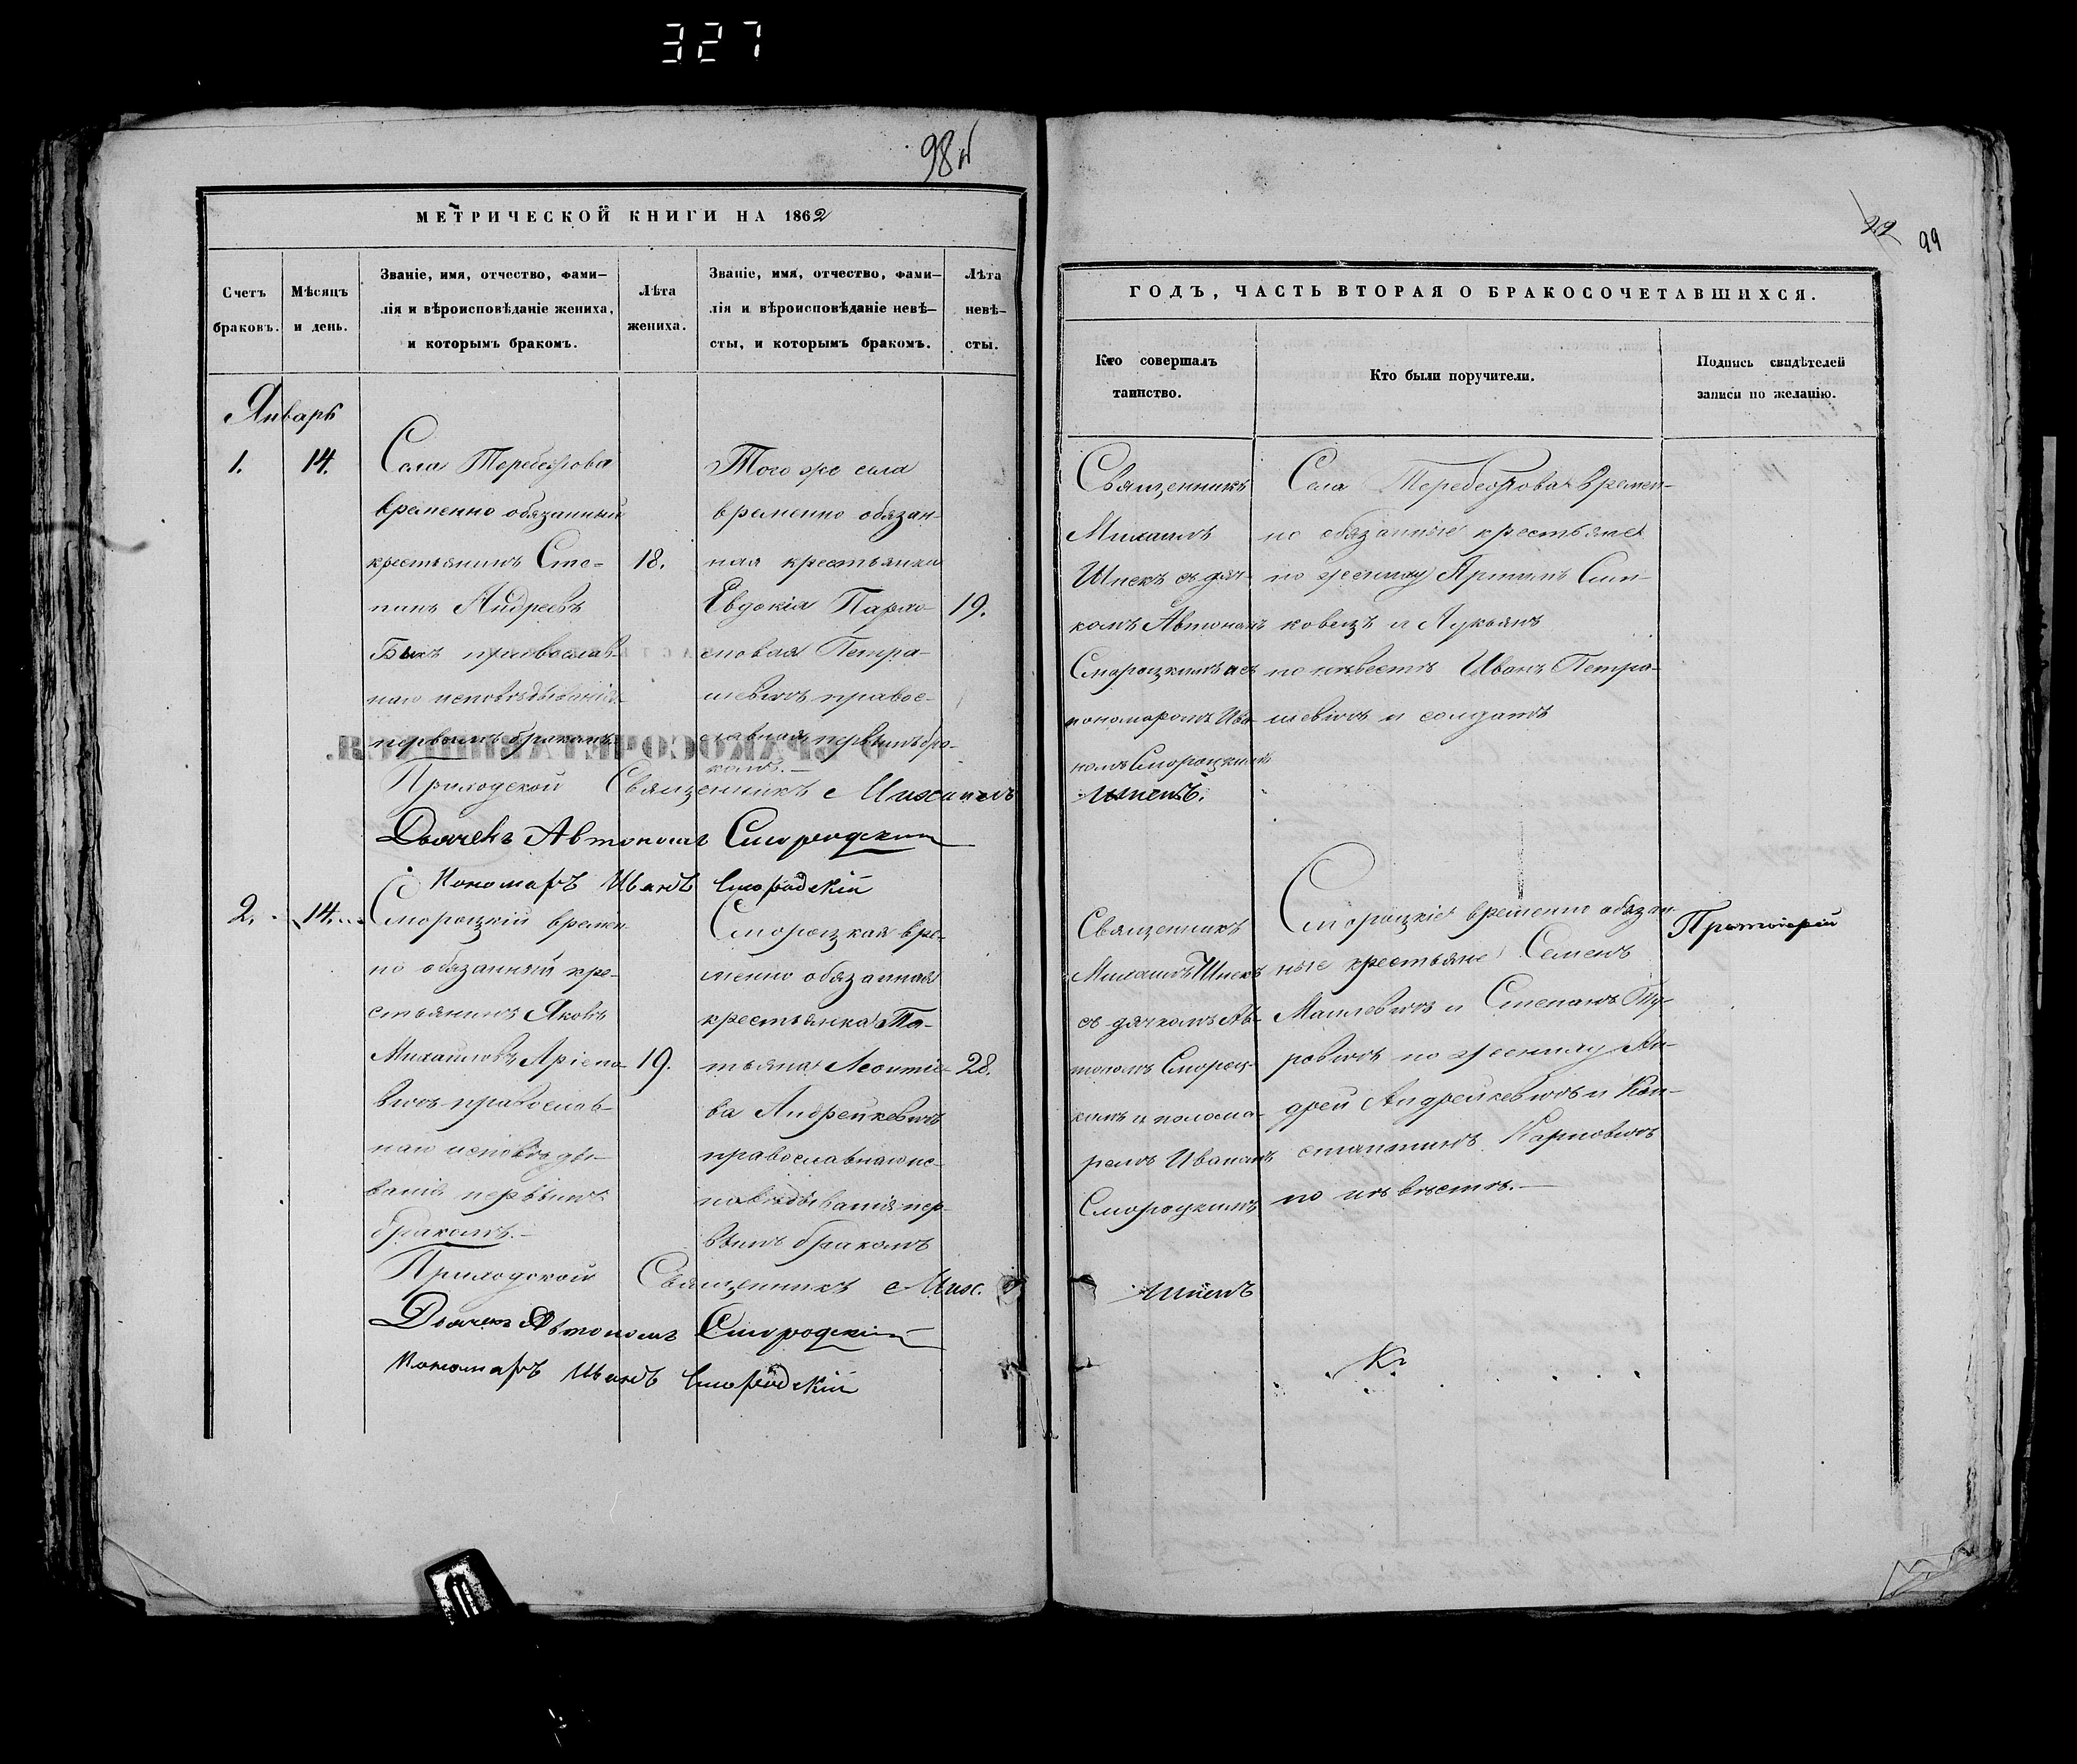 327
98
МЕТРИЧЕСКОЙ КНИГИ НА 1862
Счетъ браковъ.
Мѣсяцъ и день.
Званіе, имя, отчество, фами-
лія и вѣроисповѣданіе жениха,
и которымъ бракомъ.
Лѣта жениха.
Званіе, имя, отчество, фами-
лія и вѣроисповѣданіе невѣ-
сты, и которымъ бракомъ.
Лѣта невѣ-
сты.
Январь
1.
14.
Села Теребежова
временно обязанный
крестьянинъ Сте-
панъ Андреевъ
православ-
наго исповѣдыванія
первымъ бракомъ
18.
Того же села
временно обязан-
ная крестьянка
Евдокія Пархо-
мовая Петра-
шевичъ правос-
лавная, первымъ бра-
комъ.
19.
Приходской Священникъ Михаилъ
Дьячекъ Автономъ Смородский
Пономаръ Иванъ Смородскій
2.
14.
Смороцкій времен-
но обязанный кре-
стьянинъ Яковъ
Михаиловъ
вичъ православ-
наго исповѣды-
ванія первымъ
бракомъ.
19.
Смороцкая вре-
менно обязанная
крестьянка Та-
тьяна Леонтіе-
ва Андрейкевичъ
православнаго ис-
повѣдыванія пер-
вымъ бракомъ
28.
Приходской Священникъ Мих.
Дьячекъ Автономъ Смородский
Пономаръ Иванъ Смородскій
29
99
ГОДЪ, ЧАСТЬ ВТОРАЯ О БРАКОСОЧЕТАВШИХСЯ.
Кто совершалъ
таинство.
Кто были поручители.
Подпись свидѣтелей
записи по желанію.
Священникъ
Михаилъ
Шпекъ съ дяч-
комъ Автономъ
Смороцкимъ и съ
пономаромъ Ива-
номъ Смороцкимъ
Шпекъ.
Села Теребежова времен-
но обязанные крестьяне
по жениху
и Лукьянъ
по невѣстѣ Иванъ Петра-
шевичъ и солдатъ
Священникъ
Михаилъ Шпекъ
съ дячкомъ Ав-
тономъ Смороц-
кимъ и понома-
ремъ Иваномъ
Смороцкимъ
Шпекъ
Смороцкіе временно обязан-
ные крестьяне Семенъ
и Степанъ Ту-
ровичъ по жениху Ан-
дрей Андрейкевичъ и Кон-
стантинъ Карповичъ
по невѣстѣ.
Протоіерей